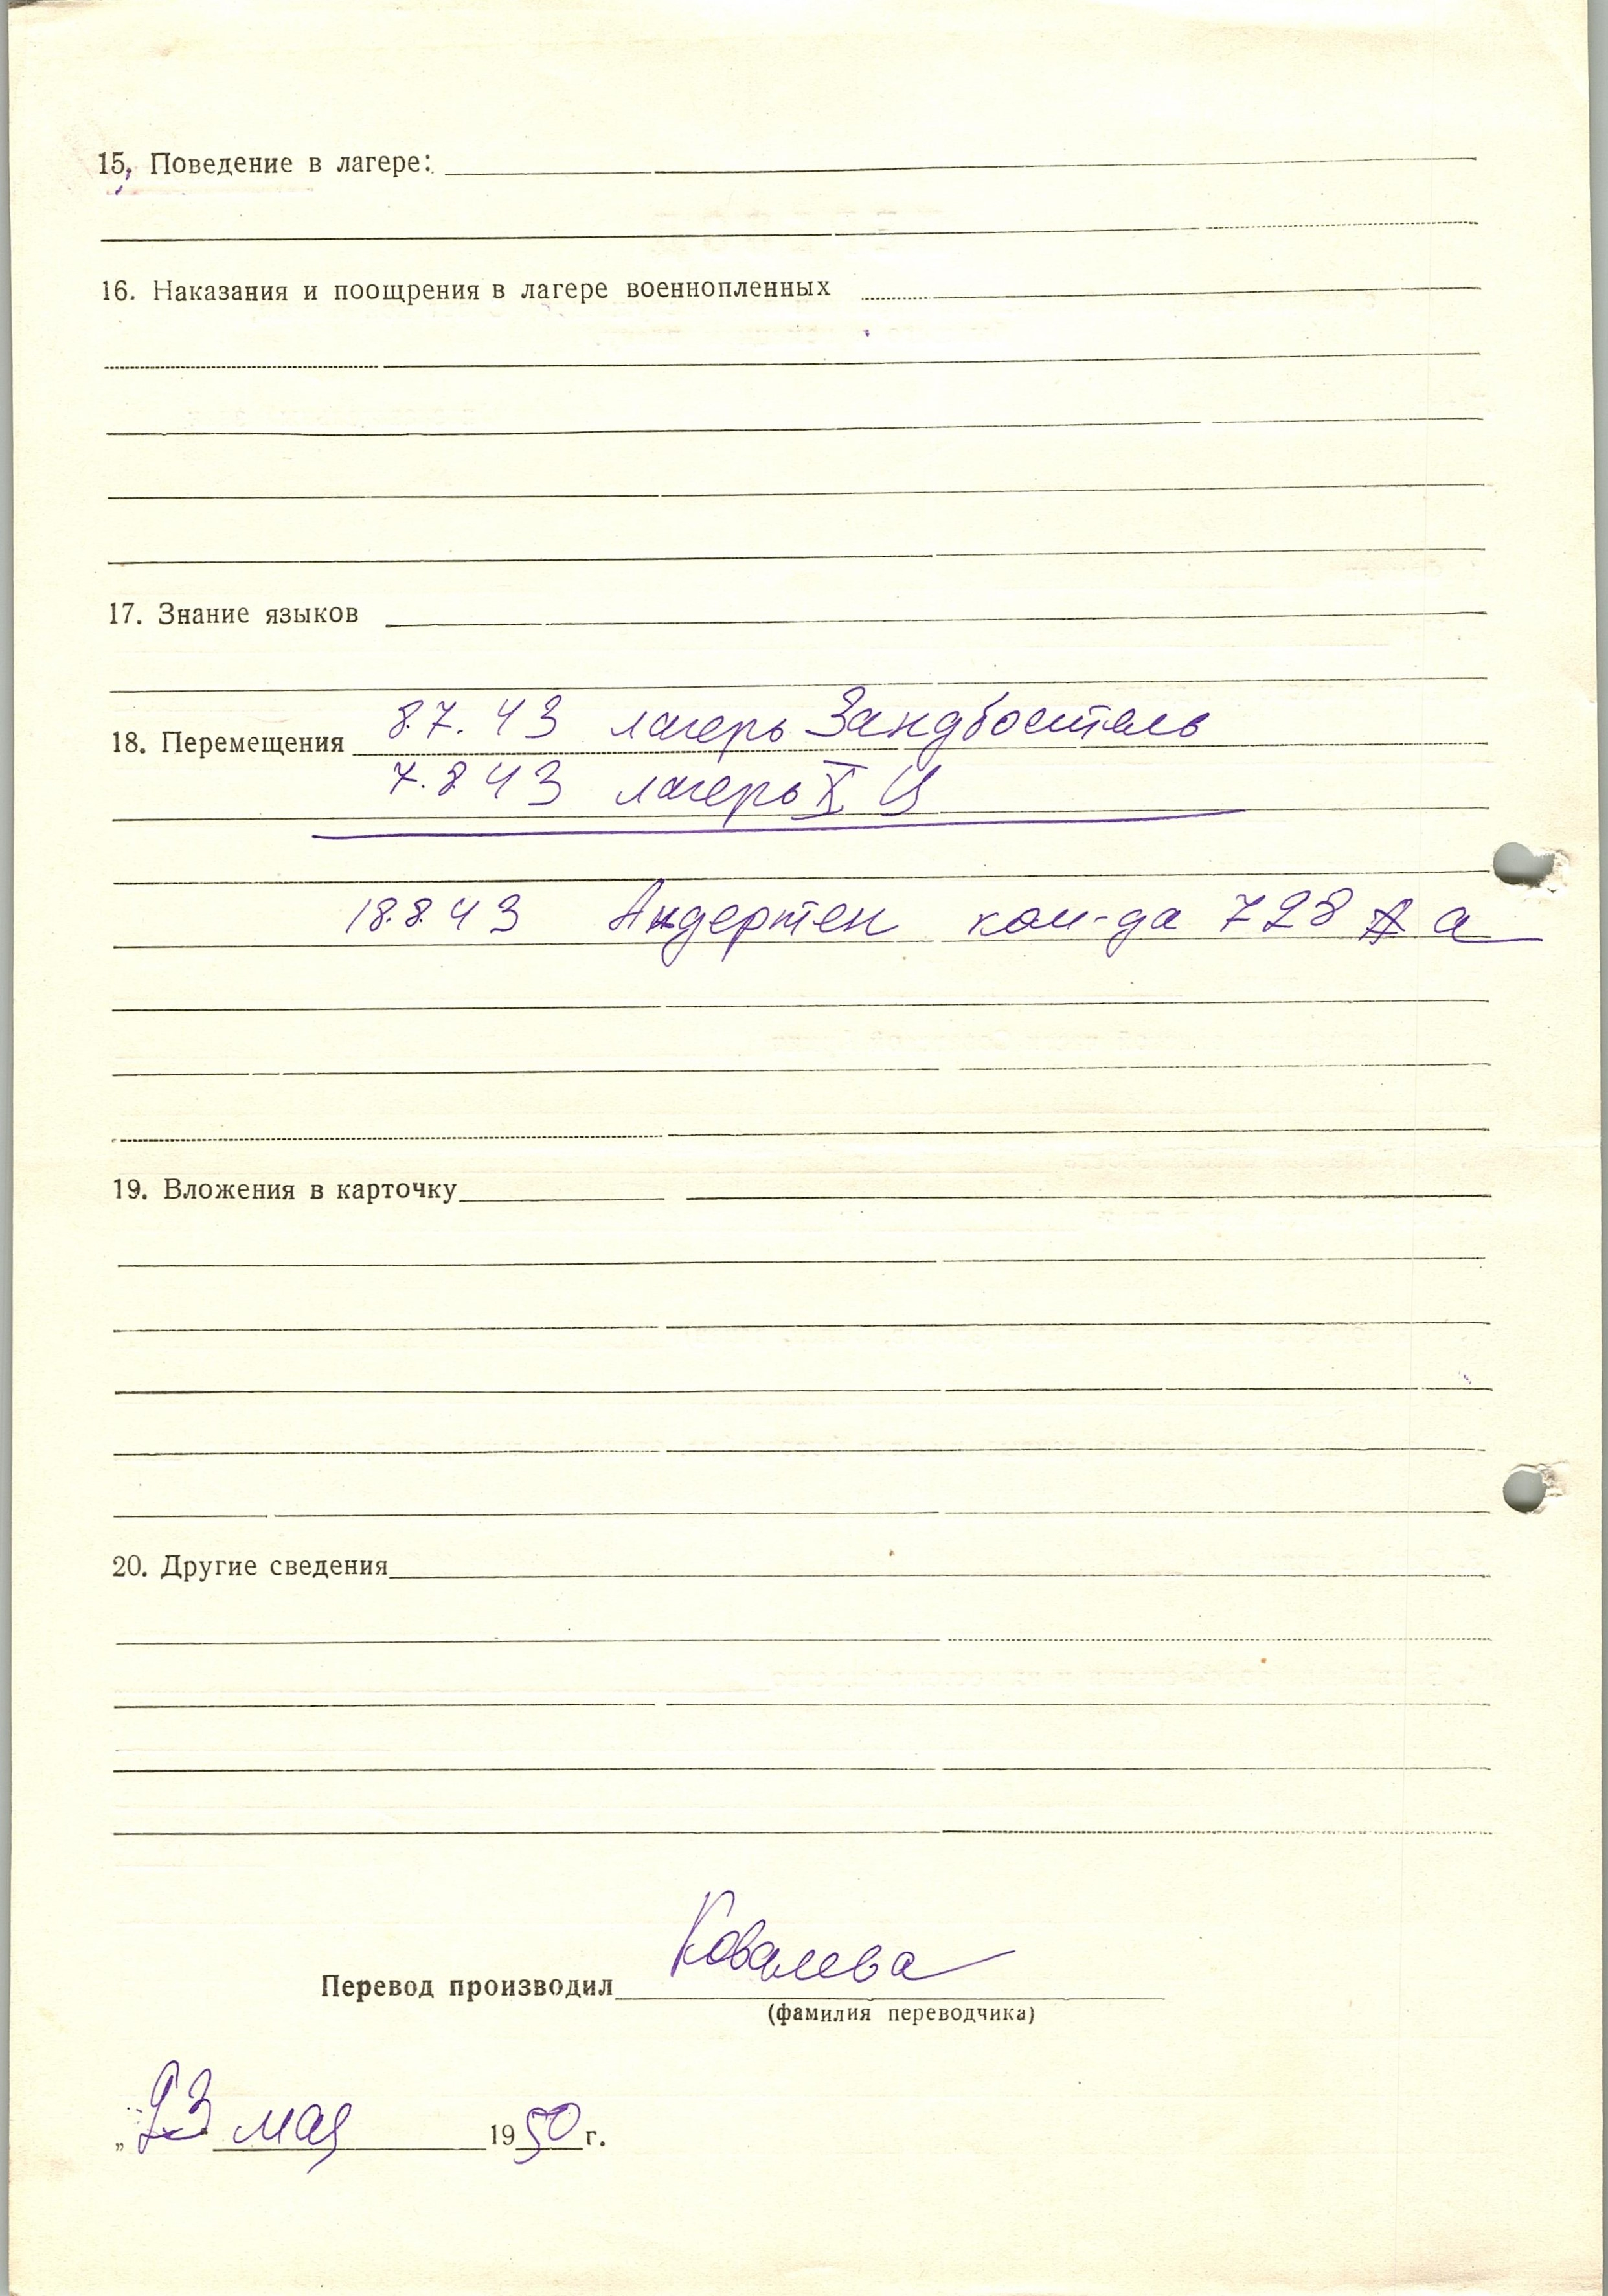 15. Поведение в лагере:
16. Наказания и поощрения в лагере военнопленных
17. Знание языков
8.7.43 лагерь Зандбостель
18. Перемещения
7.8 43 лагерь X Ц
18.8.43 Андертен ком-да 728 а
19. Вложения в карточку
20. Другие сведения
Ковалева
Перевод производил
(фамилия переводчика)
„23 мая 1950 г.